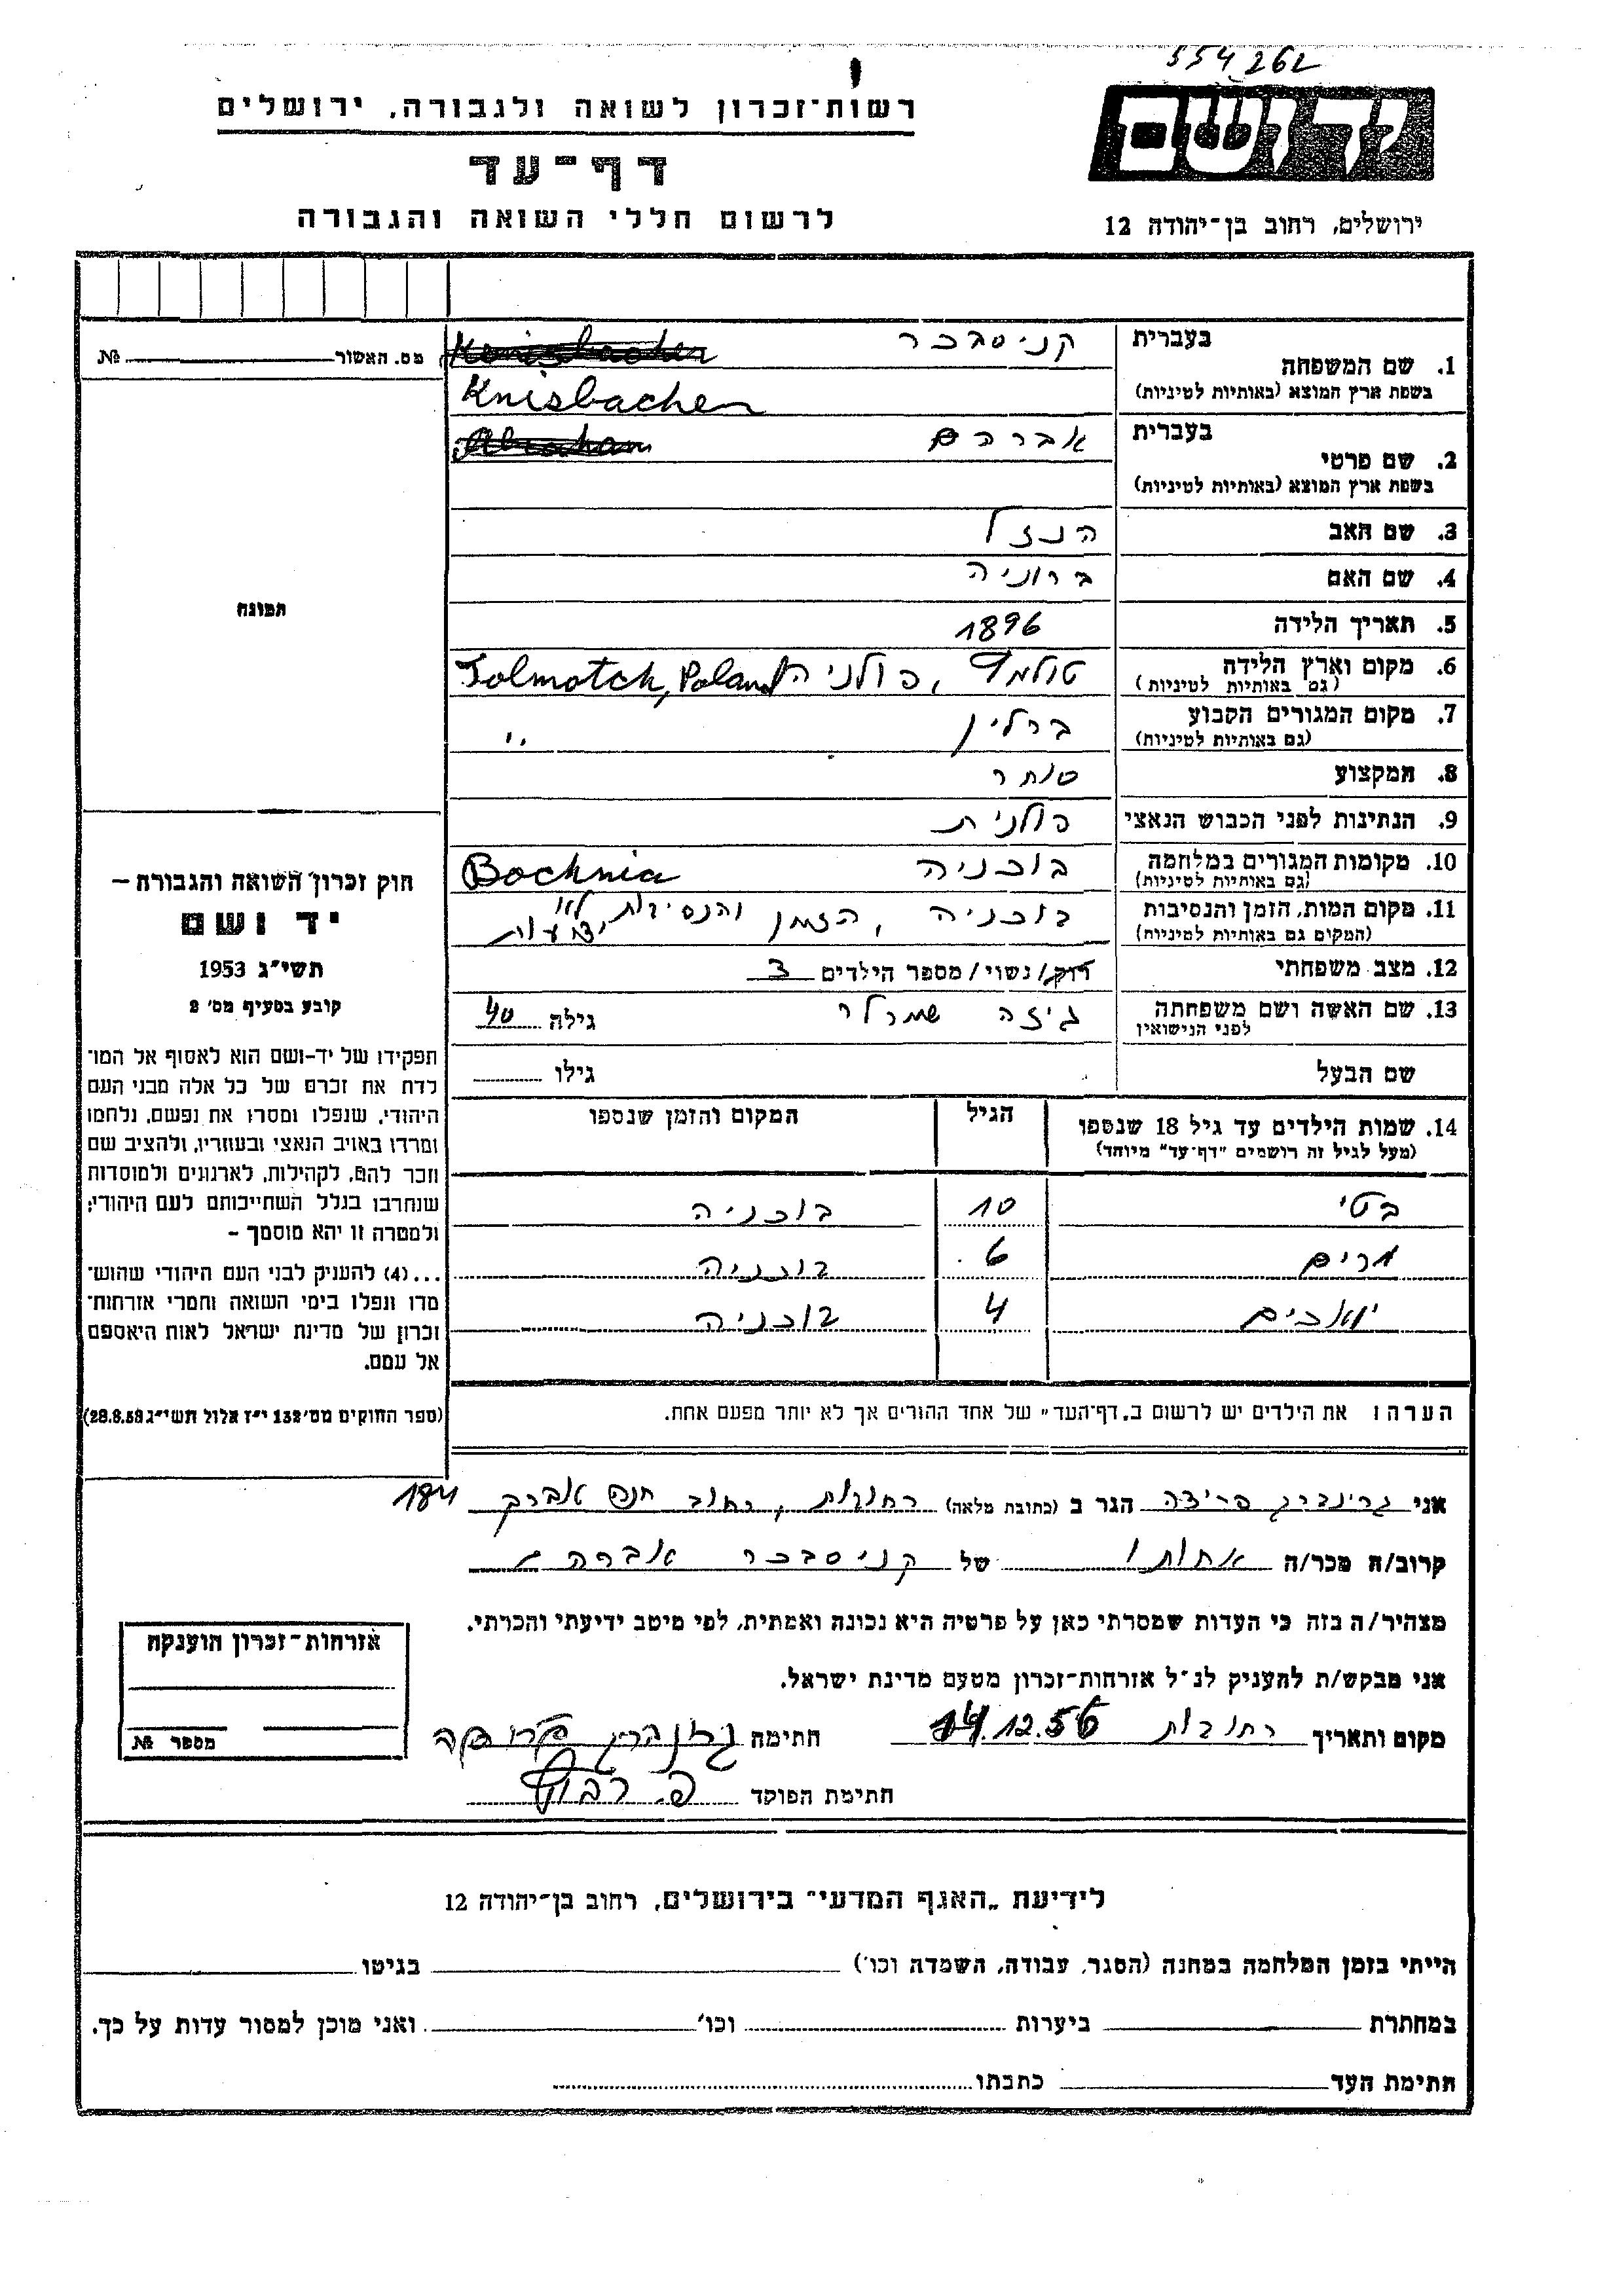 554262
יד ושם
רשות־זכרון לשואה ולגבורה, ירושלים
דף־עד
לרשום חללי השואה והגבורה
ירושלים, רחוב בן־יהודה 12
מס. האשור № 
בעברית קניסבכר
1. שם המשפחה
בשפת ארץ המוצא (באותיות לטיניות) Knisbacher
בעברית אברהם Abraham
2. שם פרטי
בשפת ארץ המוצא (באותיות לטיניות)
3. שם האב הנזל
4. שם האם ברוניה
5. תאריך הלידה 1896
6. מקום וארץ הלידה פולניה Tolmotch, Poland
(גם באותיות לטיניות)
7. מקום המגורים הקבוע ברלין "
(גם באותיות לטיניות)
8. המקצוע סוחר
9. הנתינות לפני הכבוש הנאצי פולנית
10. מקומות המגורים במלחמה בוכניה Bochnia
(גם באותיות לטיניות)
11. מקום המות, הזמן והנסיבות בוכניה, הזמן והנסיבות לא ידועות
(המקום גם באותיות לטיניות)
12. מצב משפחתי רווק/נשוי/מספר הילדים 3
13. שם האשה ושם משפחתה גיזה גילה 40
לפני הנישואין
שם הבעל גילו
14. שמות הילדים עד גיל 18 שנספו הגיל המקום והזמן שנספו
(מעל לגיל זה רושמים "דף־עד" מיוחד)
בטי 10 בוכניה
מרים 6 בוכניה
יואכים 4 בוכניה
הערה: את הילדים יש לרשום ב„דף־העד" של אחד ההורים אך לא יותר מפעם אחת.
תמונה
חוק זכרון השואה והגבורה –
יד ושם
תשי"ג 1953
קובע בסעיף מס' 2
תפקידו של יד־ושם הוא לאסוף אל המו־
לדת את זכרם של כל אלה מבני העם
היהודי, שנפלו ומסרו את נפשם, נלחמו
ומרדו באויב הנאצי ובעוזריו, ולהציב שם
וזכר להם, לקהילות, לארגונים ולמוסדות
שנחרבו בגלל השתייכותם לעם היהודי;
ולמטרה זו יהא מוסמך –
...(4) להעניק לבני העם היהודי שהוש־
מדו ונפלו בימי השואה והמרי אזרחות־
זכרון של מדינת ישראל לאות היאספם
אל עמם.
(ספר החוקים מס' 132 י"ז אלול תשי"ג 28.8.53)
אני גרינברג פרידה הגר ב (כתובת מלאה) רחובות, רחוב
קרוב/ה מכר/ה אחותו של קניסבכר אברהם
מצהיר/ה בזה כי העדות שמסרתי כאן על פרטיה היא נכונה ואמתית, לפי מיטב ידיעתי והכרתי.
אני מבקש/ת להעניק לנ"ל אזרחות־זכרון מטעם מדינת ישראל.
מקום ותאריך רחובות 14.12.56 חתימה
חתימת הפוקד
אזרחות־זכרון הוענקה
מספר №
לידיעת „האגף המדעי" בירושלים, רחוב בן־יהודה 12
הייתי בזמן המלחמה במחנה (הסגר, עבודה, השמדה וכו') בגיטו
במחתרת ביערות וכו' ואני מוכן למסור עדות על כך.
חתימת העד כתבתו